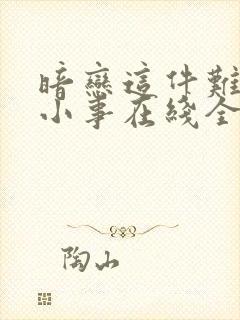 暗戀這件難
小事在綫全
陶山